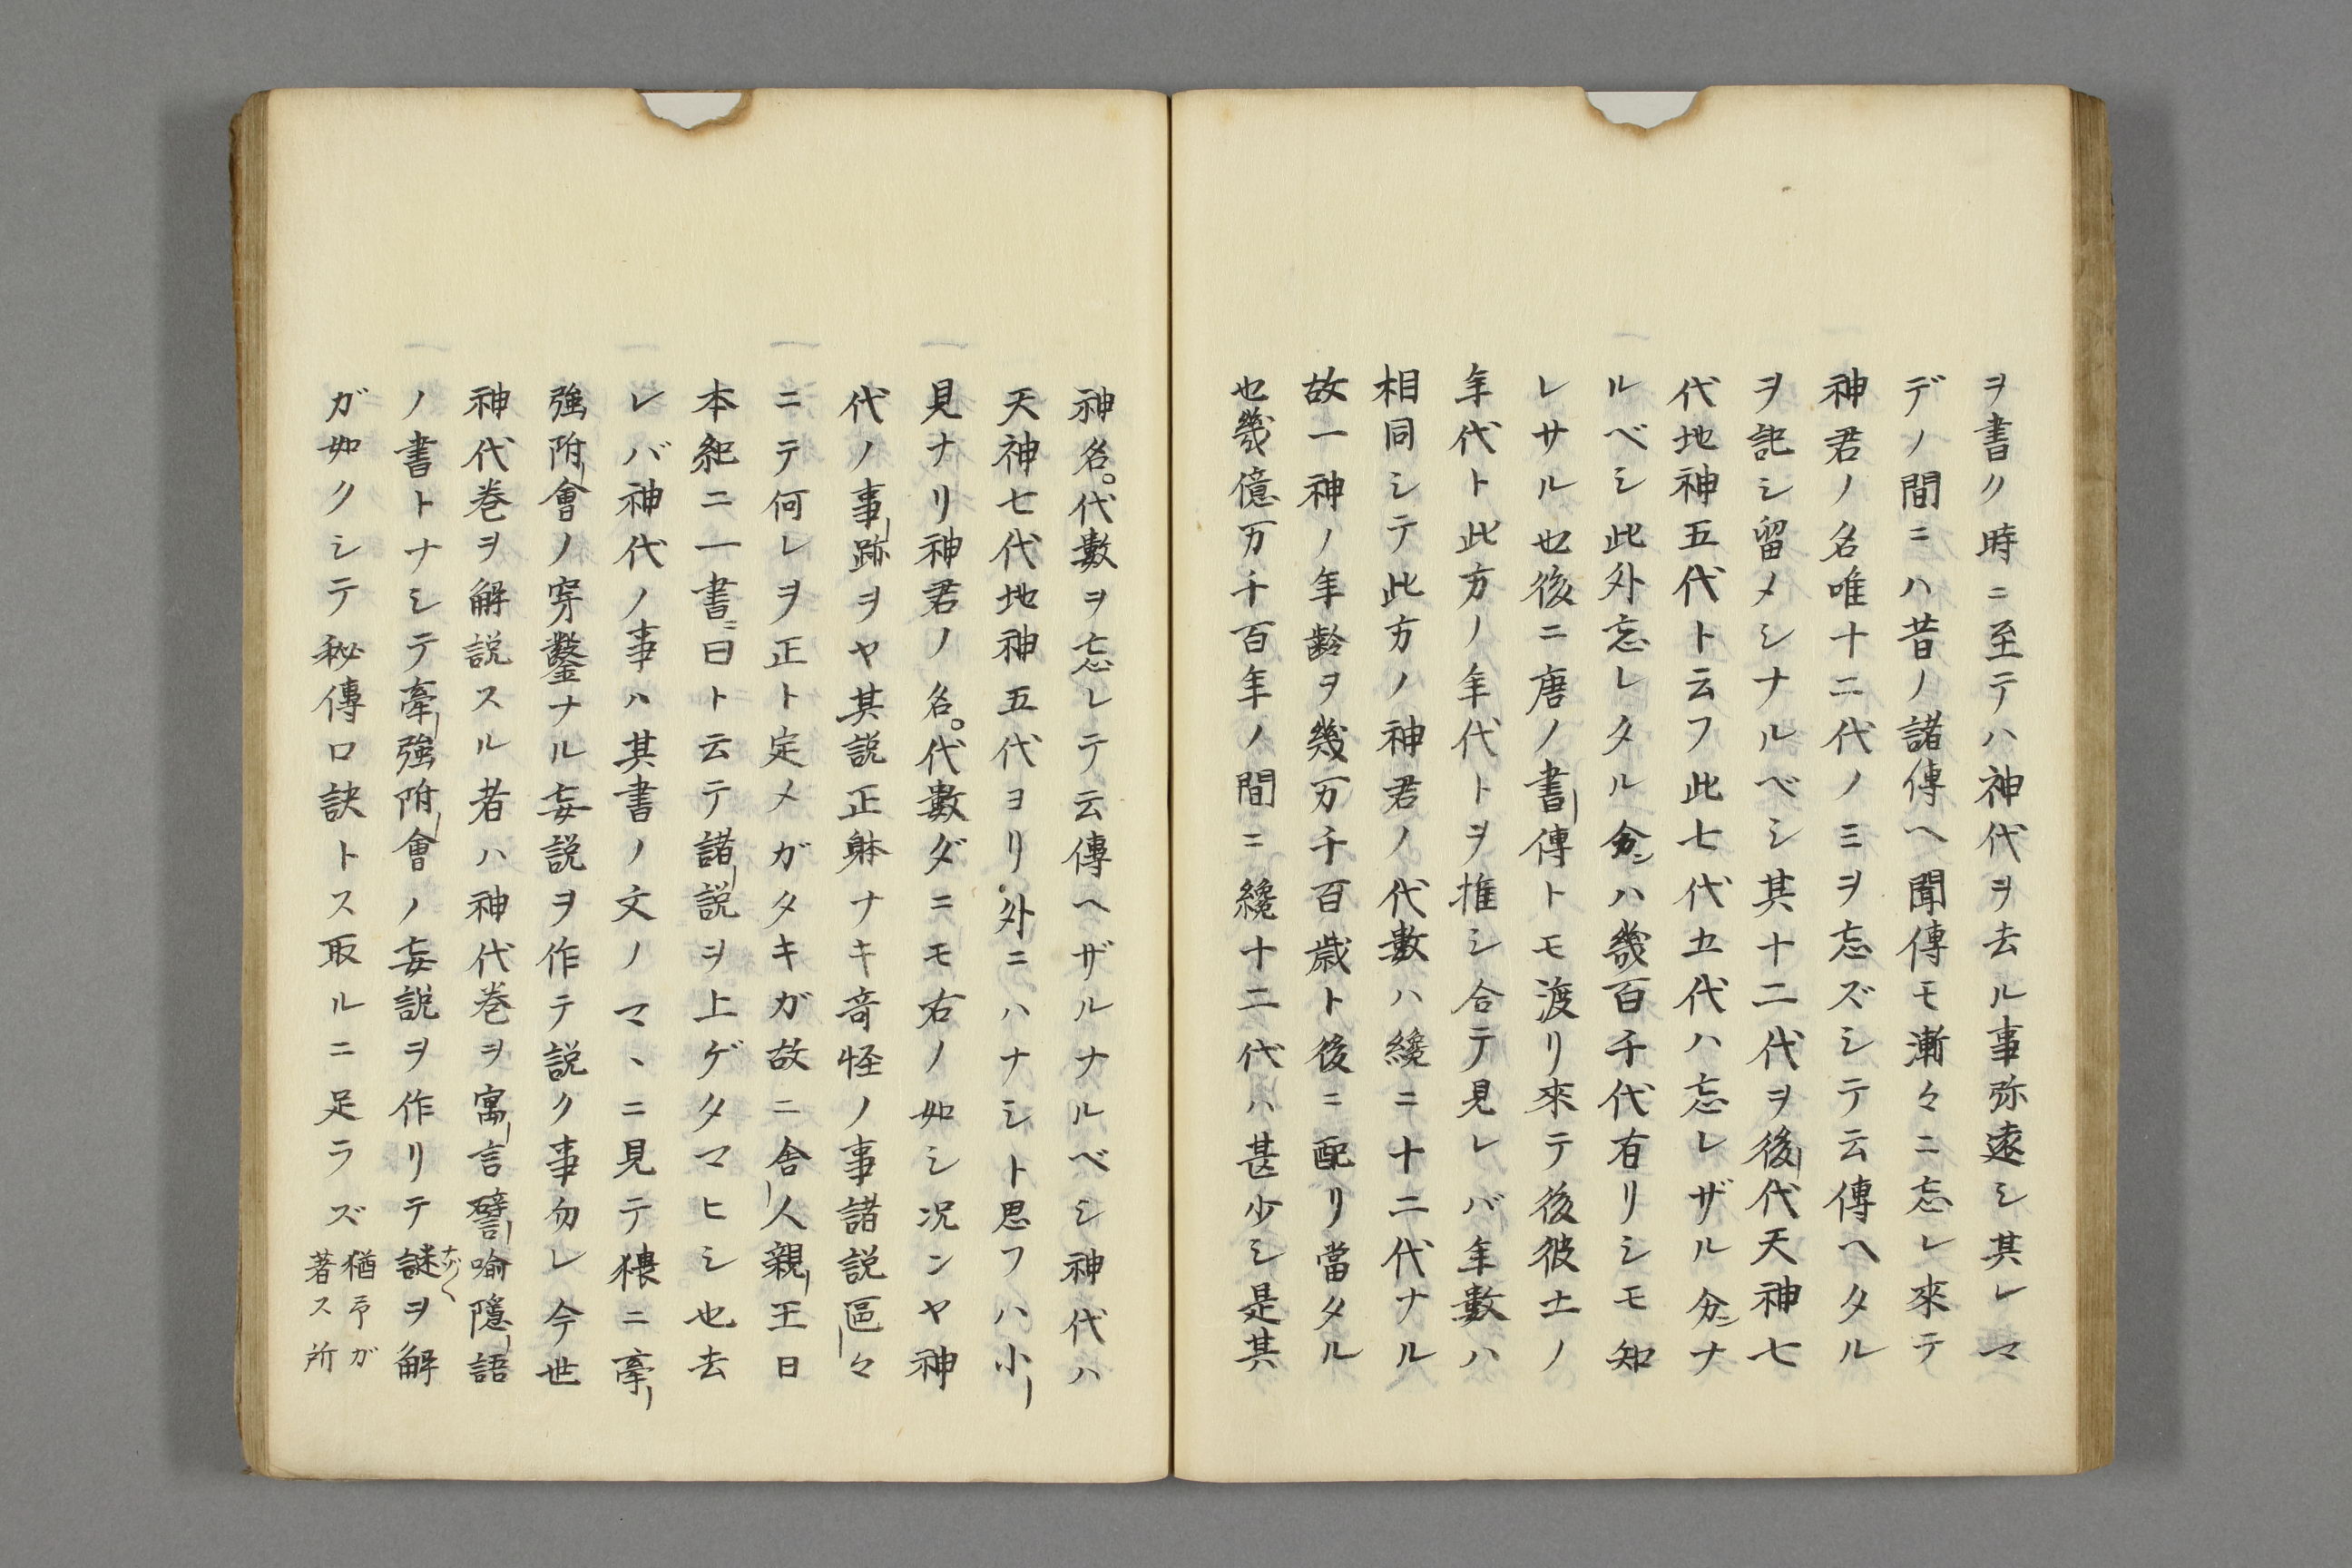 ヲ書ク時ニ至テハ神代ヲ去ル事弥遠シ其レマ
デノ間ニハ昔ノ諸傳ヘ聞傳モ漸々ニ忘レ來テ
神君ノ名唯十二代ノミヲ忘ズシテ云傳ヘタル
ヲ記シ留メシナルベシ其十二代ヲ後代天神七
代地神五代ト云フ此七代五代ハ忘レザル分ンナ
ルベシ此外忘レタル分ンハ幾百千代有リシモ知
レサル也後ニ唐ノ書傳トモ渡リ來テ後彼土ノ
年代ト此方ノ年代トヲ推シ合テ見レバ年數ハ
相同シテ此方ノ神君ノ代數ハ纔ニ十二代ナル
故一神ノ年齡ヲ幾万千百歳ト後ニ配リ當タル
也幾億万千百年ノ間ニ纔十二代ハ甚少シ是其
神名。代數ヲ忘レテ云傳ヘザルナルベシ神代ハ
天神七代地神五代ヨリ外ニハナシト思フハ小
見ナリ神君ノ名。代數ダニモ右ノ如シ况ンヤ神
代ノ事跡ヲヤ其説正躰ナキ竒怪ノ事諸説區々
ニテ何レヲ正ト定メガタキガ故ニ舎人親王日
本紀ニ一書ニ曰ト云テ諸説ヲ上ゲタマヒシ也去
レバ神代ノ事ハ其書ノ文ノマヽニ見テ猥ニ牽
強附會ノ穿鑿ナル妄説ヲ作テ説ク事勿レ今世
神代巻ヲ解説スル者ハ神代巻ヲ寓言譬喩隱語
ノ書トナシテ牽強附會ノ妄説ヲ作リテ謎ヲ解
ナゾ〱
ガ如クシテ秘傳口訣トス取ルニ足ラズ
猶予ガ
著ス所